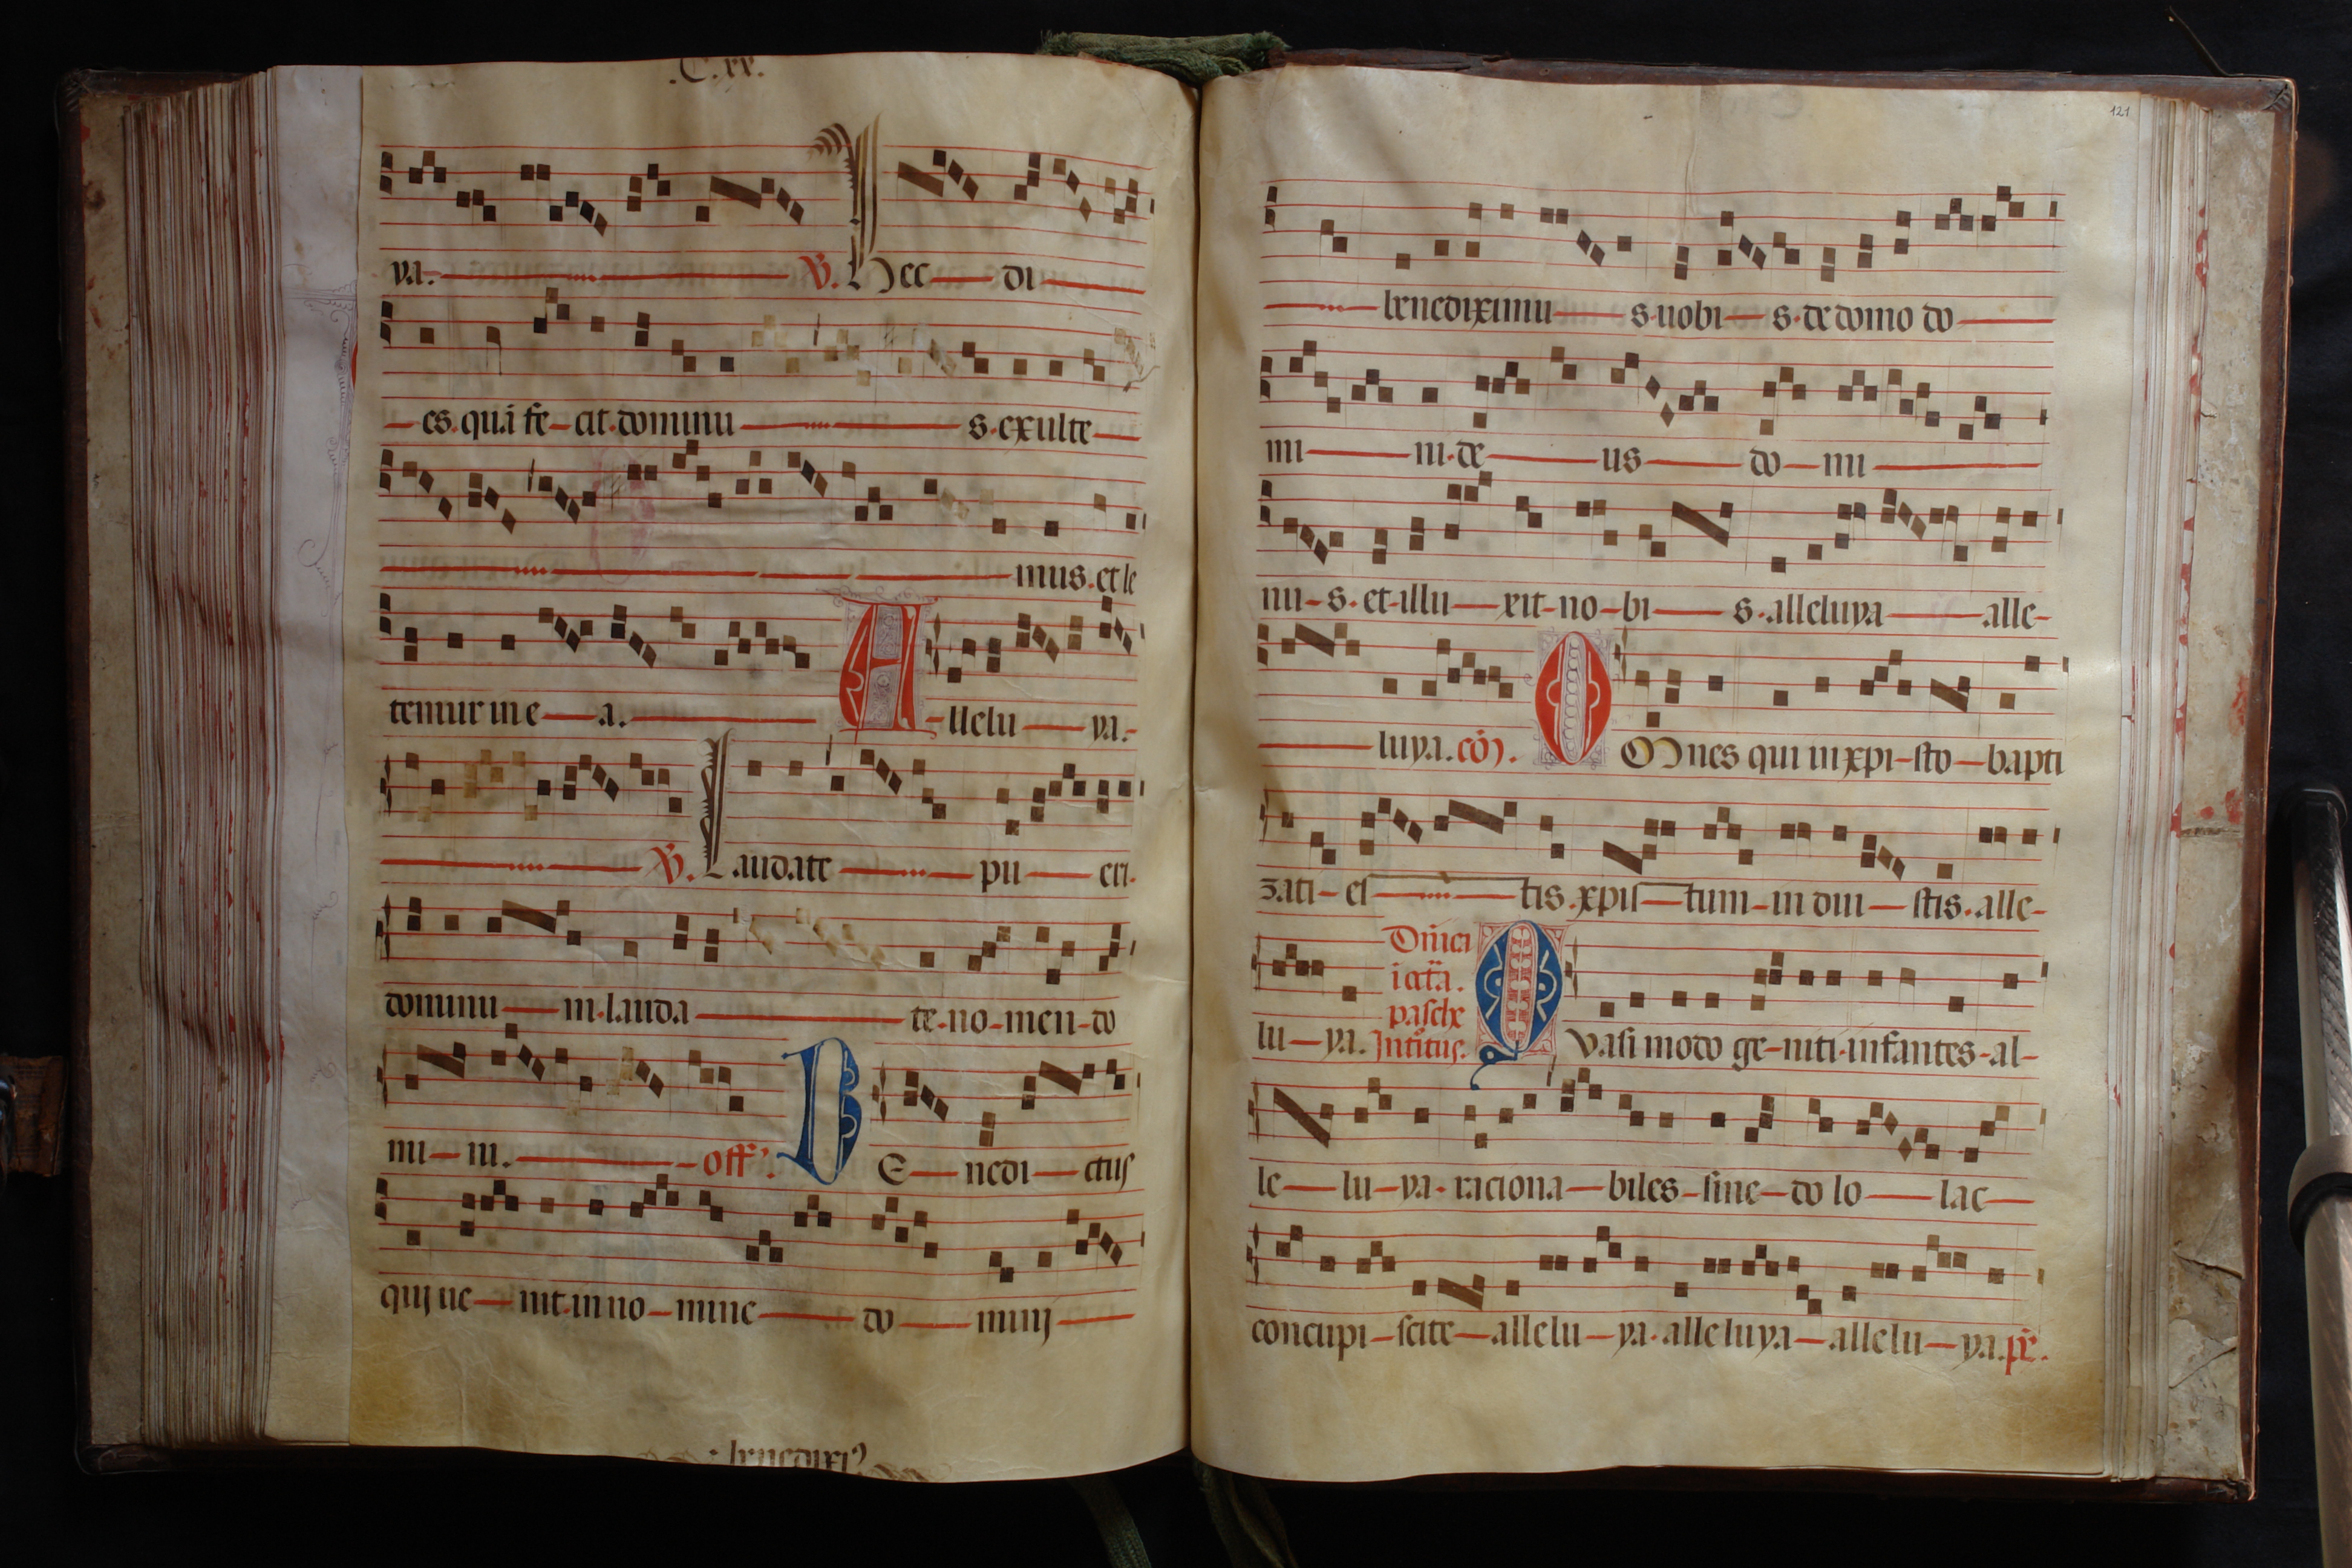 .C.xx.
ya. V. Hec di
es. quã fe cit. dominu s. exulte
mus. et le
temur in e a. Allelu ya.
V. Laudate pu eri.
dominu m. lauda te. no men do
mi ni. off'. BE nedi ctus
qui ue nit. in no mine do minj
: benedixi
121
benediximu s. uobi s. de domo do
mi ni. de us do mi
nu s. et illu xit no bi s. alleluya alle
luya. cõ. OMnes qui in xpi sto bapti
zati es tis. xpis tum in dui stis. alle
Dñica
i octã.
pasche
lu ya. Introitus. Quasi modo ge niti infantes al
le lu ya. raciona biles sine do lo lac
concupi scite allelu ya. alleluya allelu ya. ps̃.